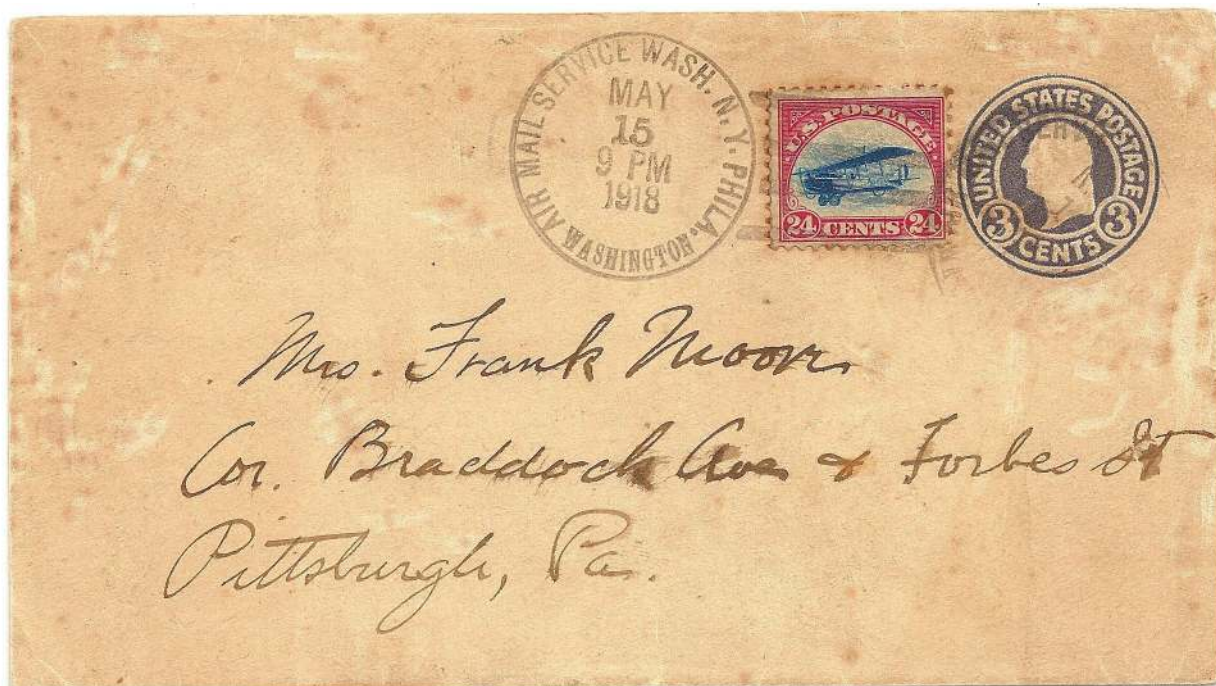 AIR MAIL SERVICE WASH. N.Y. PHILA.
MAY
15
9 PM
1918
WASHINGTON
U.S. POSTAGE
24 CENTS 24
UNITED STATES POSTAGE
3 CENTS 3
Mrs. Frank Moore
Cor. Braddock Ave & Forbes St
Pittsburgh, Pa.